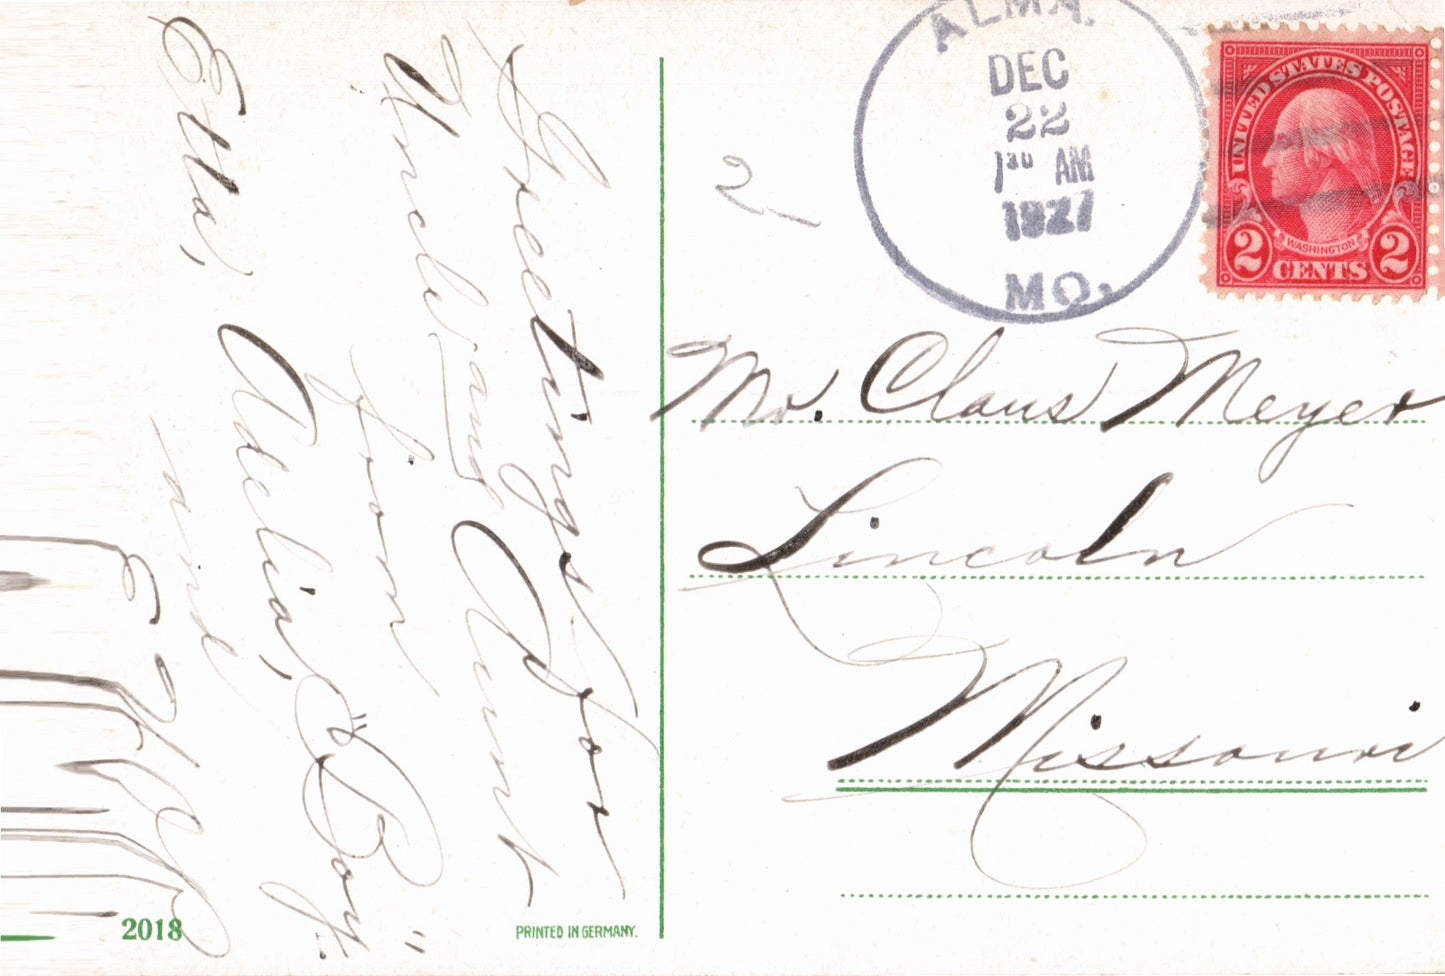 Greetings for
Uncle and Aunt
from
Etta, Adelia, "Boy."
and
2018
PRINTED IN GERMANY.
2
ALMA.
DEC
22
1 30 AM
1927
MO.
UNITED STATES POSTAGE
WASHINGTON
2 CENTS 2
Mr. Claus Meyer
Lincoln
Missouri